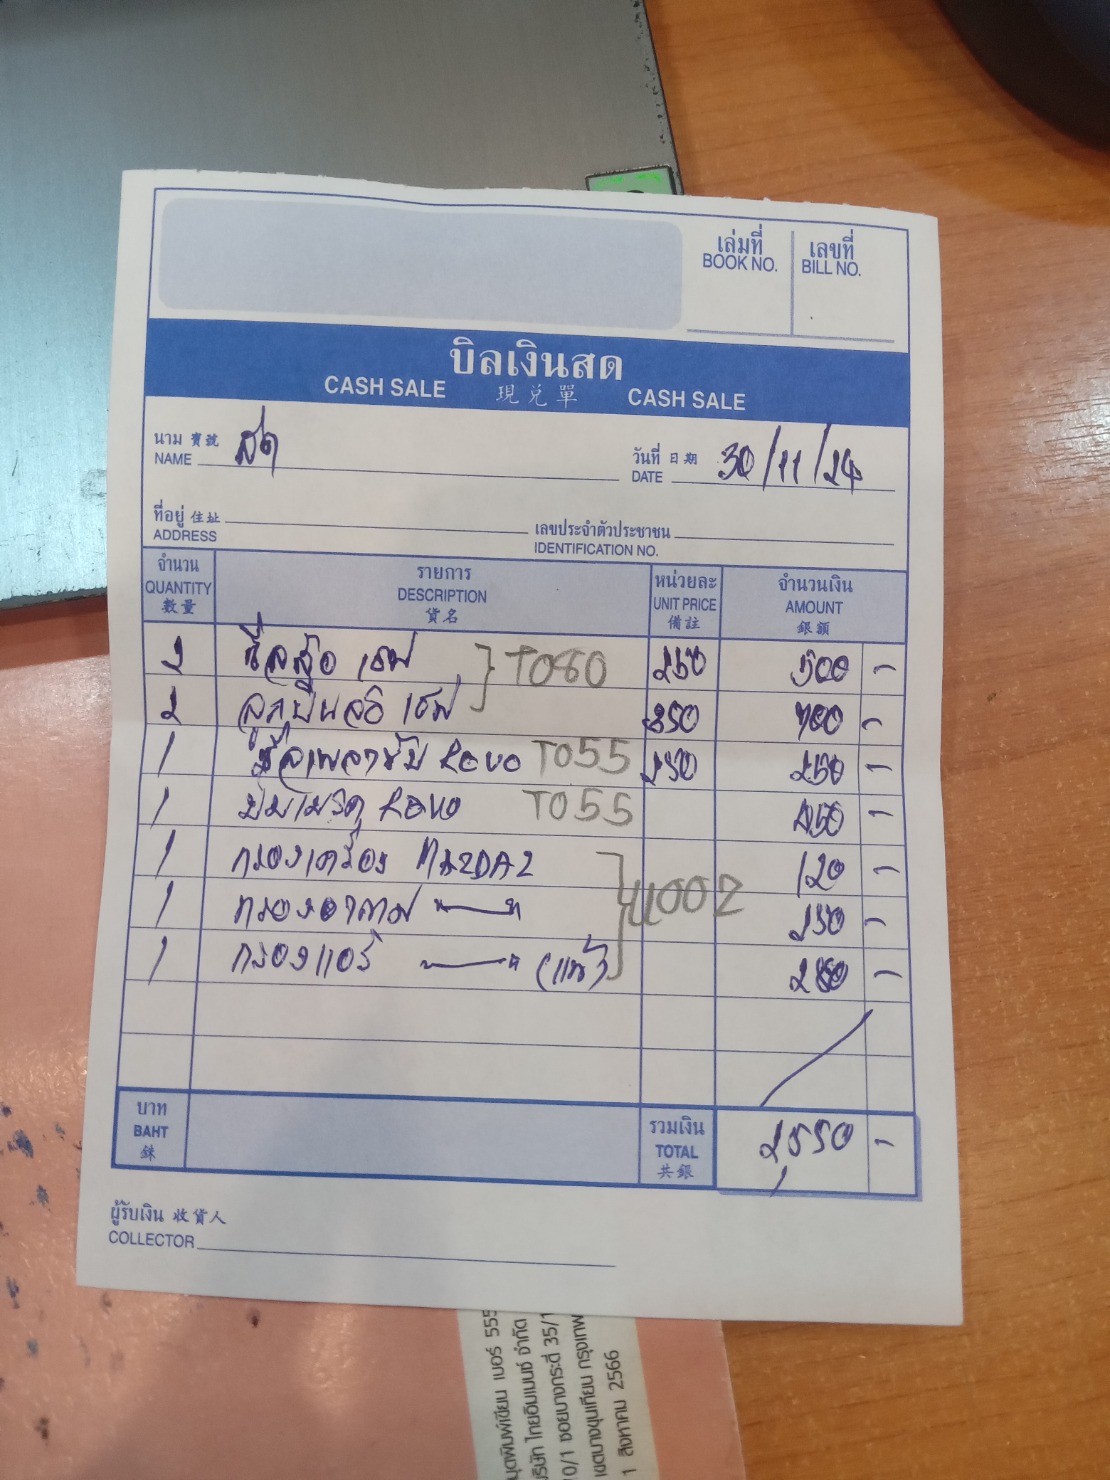 เล่มที่ เลขที่
BOOK NO. BILL NO.
บิลเงินสด
CASH SALE 現兑單 CASH SALE
นาม 寶號 สด วันที่ 日期 30/11/24
NAME DATE
ที่อยู่ 住址 เลขประจำตัวประชาชน
ADDRESS IDENTIFICATION NO.
จำนวน รายการ หน่วยละ จำนวนเงิน
QUANTITY DESCRIPTION UNIT PRICE AMOUNT
數量 貨名 備註 銀額
2 ซีลล้อ T080 250 500 -
2 ลูกปืน 350 700 -
1 REVO T055 250 250 -
1 REVO T055 -
1 กรองเครื่อง MAZDA2 120 -
1 กรองอากาศ " " 4U002 250 -
1 กรองแอร์ " " (แท้) 280 -
บาท รวมเงิน
BAHT TOTAL 2,550 -
銖 共銀
ผู้รับเงิน 收貨人
COLLECTOR
มุดพิมพ์เขียน เบอร์ 555
บริษัท ไทยอิมเมนซ์ จำกัด
10/1 ซอยบางกระดี่ 35/1
เขตบางขุนเทียน กรุงเทพ
1 สิงหาคม 2566